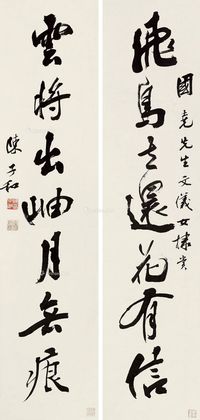 飛鳥知還花有信
國堯先生文儀女棣賞
雲將出岫月無痕
陳子和